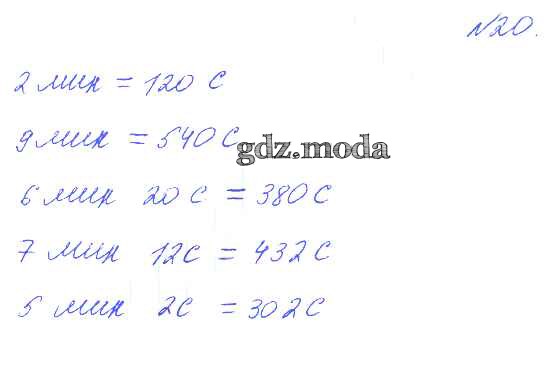 №20.
2 мин = 120 с
9 мин = 540 с
gdz.moda
6 мин 20 с = 380 с
7 мин 12 с = 432 с
5 мин 2 с = 302 с